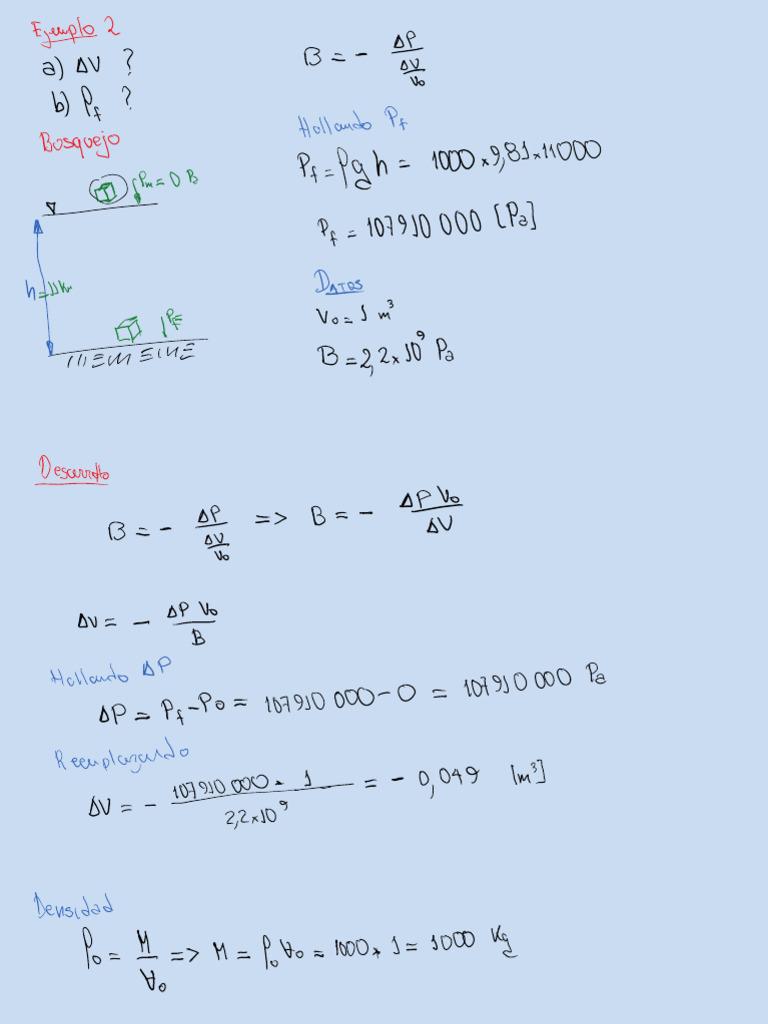 Ejemplo 2
a) ΔV ?
b) ρf ?
Bosquejo
Pm = 0 B
h = 11 Km
Pf
B = - ΔP / (ΔV / V0)
Hallando Pf
Pf = ρgh = 1000 × 9,81 × 11000
Pf = 107910 000 [Pa]
DATOS
V0 = 1 m³
B = 2,2 × 10⁹ Pa
Desarrollo
B = - ΔP / (ΔV / V0) => B = - ΔP V0 / ΔV
ΔV = - ΔP V0 / B
Hallando ΔP
ΔP = Pf - P0 = 107910 000 - 0 = 107910 000 Pa
Reemplazando
ΔV = - 107910 000 * 1 / 2,2 × 10⁹ = - 0,049 [m³]
Densidad
ρ0 = M / V0 => M = ρ0 V0 = 1000 * 1 = 1000 Kg